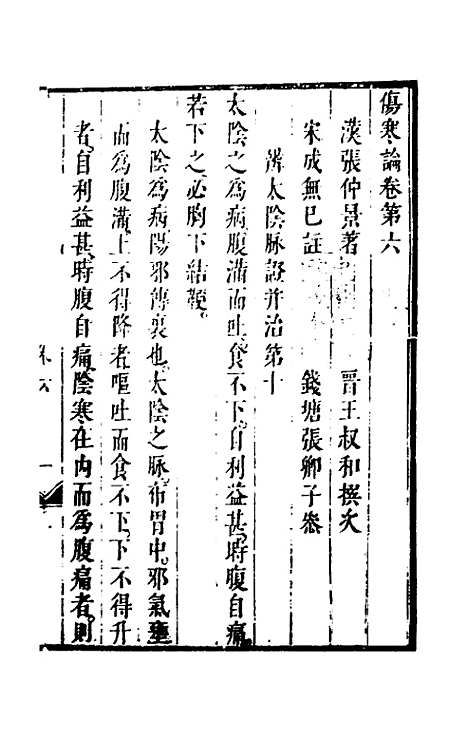 傷寒論卷第六
漢張仲景著 晉王叔和撰次
宋成無已註 錢塘張卿子參
辨太陰脉證并治第十
太陰之爲病腹滿而吐食不下自利益甚時腹自痛
若下之必胸下結鞕
太陰爲病陽邪傳裏也太陰之脉布胃中邪氣壅
而爲腹滿上不得降者嘔吐而食不下下不得升
者自利益甚時腹自痛陰寒在內而爲腹痛者則
卷六 一